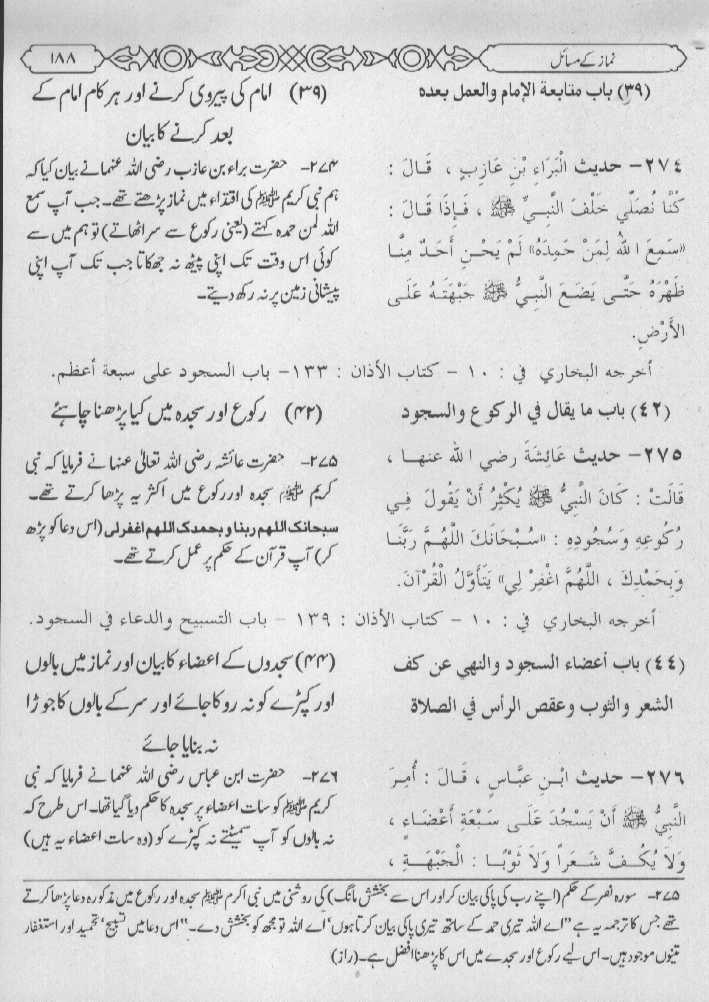 نماز کے مسائل
۱۸۸
(۳۹) باب متابعة الإمام والعمل بعده
٢٧٤- حديث الْبَرَاءِ بْنِ عَازِبٍ ، قَالَ :
كُنَّا نُصَلِّي خَلْفَ النَّبِيِّ ﷺ ، فَإِذَا قَالَ :
«سَمِعَ اللهُ لِمَنْ حَمِدَهُ» لَمْ يَحْنِ أَحَدٌ مِنَّا
ظَهْرَهُ حَتَّى يَضَعَ النَّبِيُّ ﷺ جَبْهَتَهُ عَلَى
الأَرْضِ.
(۳۹) امام کی پیروی کرنے اور ہر کام امام کے
بعد کرنے کا بیان
۲۷۴- حضرت براء بن عازب رضی اللہ عنہما نے بیان کیا کہ
ہم نبی کریم ﷺ کی اقتداء میں نماز پڑھتے تھے۔ جب آپ سمع
اللہ لمن حمدہ کہتے (یعنی رکوع سے سر اٹھاتے) تو ہم میں سے
کوئی اس وقت تک اپنی پیٹھ نہ جھکاتا جب تک آپ اپنی
پیشانی زمین پر نہ رکھ دیتے۔
أخرجه البخاري في : ١٠ - كتاب الأذان : ١٣٣- باب السجود على سبعة أعظم.
(٤٢) باب ما يقال في الركوع والسجود
٢٧٥- حديث عَائِشَةَ رضي الله عنها ،
قَالَتْ : كَانَ النَّبِيُّ ﷺ يُكْثِرُ أَنْ يَقُولَ فِي
رُكُوعِهِ وَسُجُودِهِ : «سُبْحَانَكَ اللَّهُمَّ رَبَّنَا
وَبِحَمْدِكَ ، اللَّهُمَّ اغْفِرْ لِي» يَتَأَوَّلُ الْقُرْآنَ.
(۴۲) رکوع اور سجدہ میں کیا پڑھنا چاہئے
۲۷۵- حضرت عائشہ رضی اللہ تعالیٰ عنہا نے فرمایا کہ نبی
کریم ﷺ سجدہ اور رکوع میں اکثر یہ پڑھا کرتے تھے۔
سبحانک اللهم ربنا و بحمدک اللهم اغفرلی (اس دعا کو پڑھ
کر) آپ قرآن کے حکم پر عمل کرتے تھے۔
أخرجه البخاري في : ١٠ - كتاب الأذان : ١٣٩ - باب التسبيح والدعاء في السجود.
(٤٤) باب أعضاء السجود والنهي عن كف
الشعر والثوب وعقص الرأس في الصلاة
٢٧٦- حديث ابْنِ عَبَّاسٍ ، قَالَ : أُمِرَ
النَّبِيُّ ﷺ أَنْ يَسْجُدَ عَلَى سَبْعَةِ أَعْضَاءٍ ،
وَلاَ يَكُفَّ شَعَراً وَلاَ ثَوْبًا : الْجَبْهَةِ ،
(۴۴) سجدوں کے اعضاء کا بیان اور نماز میں بالوں
اور کپڑے کو نہ روکا جائے اور سر کے بالوں کا جوڑا
نہ بنایا جائے
۲۷۶- حضرت ابن عباس رضی اللہ عنہما نے فرمایا کہ نبی
کریم ﷺ کو سات اعضاء پر سجدہ کا حکم دیا گیا تھا۔ اس طرح کہ
نہ بالوں کو آپ سمیٹتے نہ کپڑے کو (وہ سات اعضاء یہ ہیں)
۲۷۵- سورہ نصر کے حکم (اپنے رب کی پاکی بیان کر اور اس سے بخشش مانگ) کی روشنی میں نبی اکرم ﷺ سجدہ اور رکوع میں مذکورہ دعا پڑھا کرتے
تھے جس کا ترجمہ یہ ہے "اے اللہ تیری حمد کے ساتھ تیری پاکی بیان کرتا ہوں' اے اللہ تو مجھ کو بخشش دے۔" اس دعا میں تسبیح' تحمید اور استغفار
تینوں موجود ہیں۔ اس لیے رکوع اور سجدے میں اس کا پڑھنا افضل ہے۔ (راز)